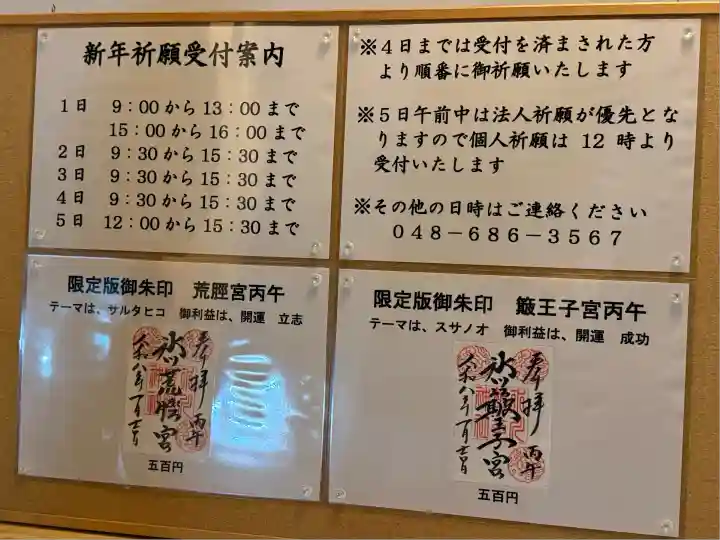 新年祈願受付案内
1日 9:00から13:00まで
15:00から16:00まで
2日 9:30から15:30まで
3日 9:30から15:30まで
4日 9:30から15:30まで
5日 12:00から15:30まで
※4日までは受付を済まされた方
より順番に御祈願いたします
※5日午前中は法人祈願が優先とな
りますので個人祈願は 12 時より
受付いたします
※その他の日時はご連絡ください
048-686-3567
限定版御朱印 荒脛宮丙午
テーマは、サルタヒコ 御利益は、開運 立志
奉拝 丙午
氷川荒脛宮
令和八年
五百円
限定版御朱印 簸王子宮丙午
テーマは、スサノオ 御利益は、開運 成功
奉拝 丙午
王子宮
令和八年
五百円